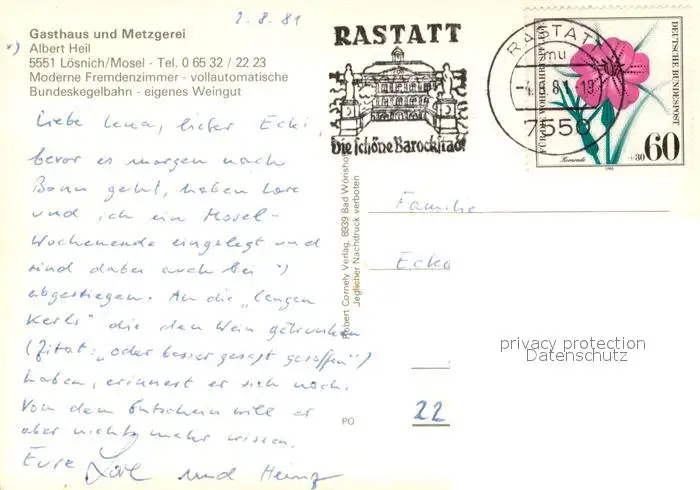 2.8.81
Gasthaus und Metzgerei
*) Albert Heil
5551 Lösnich/Mosel - Tel. 0 65 32 / 22 23
Moderne Fremdenzimmer - vollautomatische
Bundeskegelbahn - eigenes Weingut
Liebe Lena, lieber Ecki,
bevor es morgen nach
Bonn geht, haben Lore
und ich ein Mosel-
Wochenende eingelegt und
sind dabei auch bei *)
abgestiegen. An die „langen
Kerls" die den Wein getrunken
(Zitat: „oder besser gesagt gesoffen")
haben, erinnert er sich noch.
Von dem Gutschein will er
aber nichts mehr wissen.
Eure Lore und Heinz
RASTATT
Die schöne Barockstadt
RASTATT
mu
-4.8.81-19
7550
FÜR DIE WOHLFAHRTSPFLEGE
DEUTSCHE BUNDESPOST
Kornrade
+30 60
1980
Robert Cornely Verlag, 8939 Bad Wörishof
Jeglicher Nachdruck verboten
Familie
Ecka
PO
22
privacy protection
Datenschutz